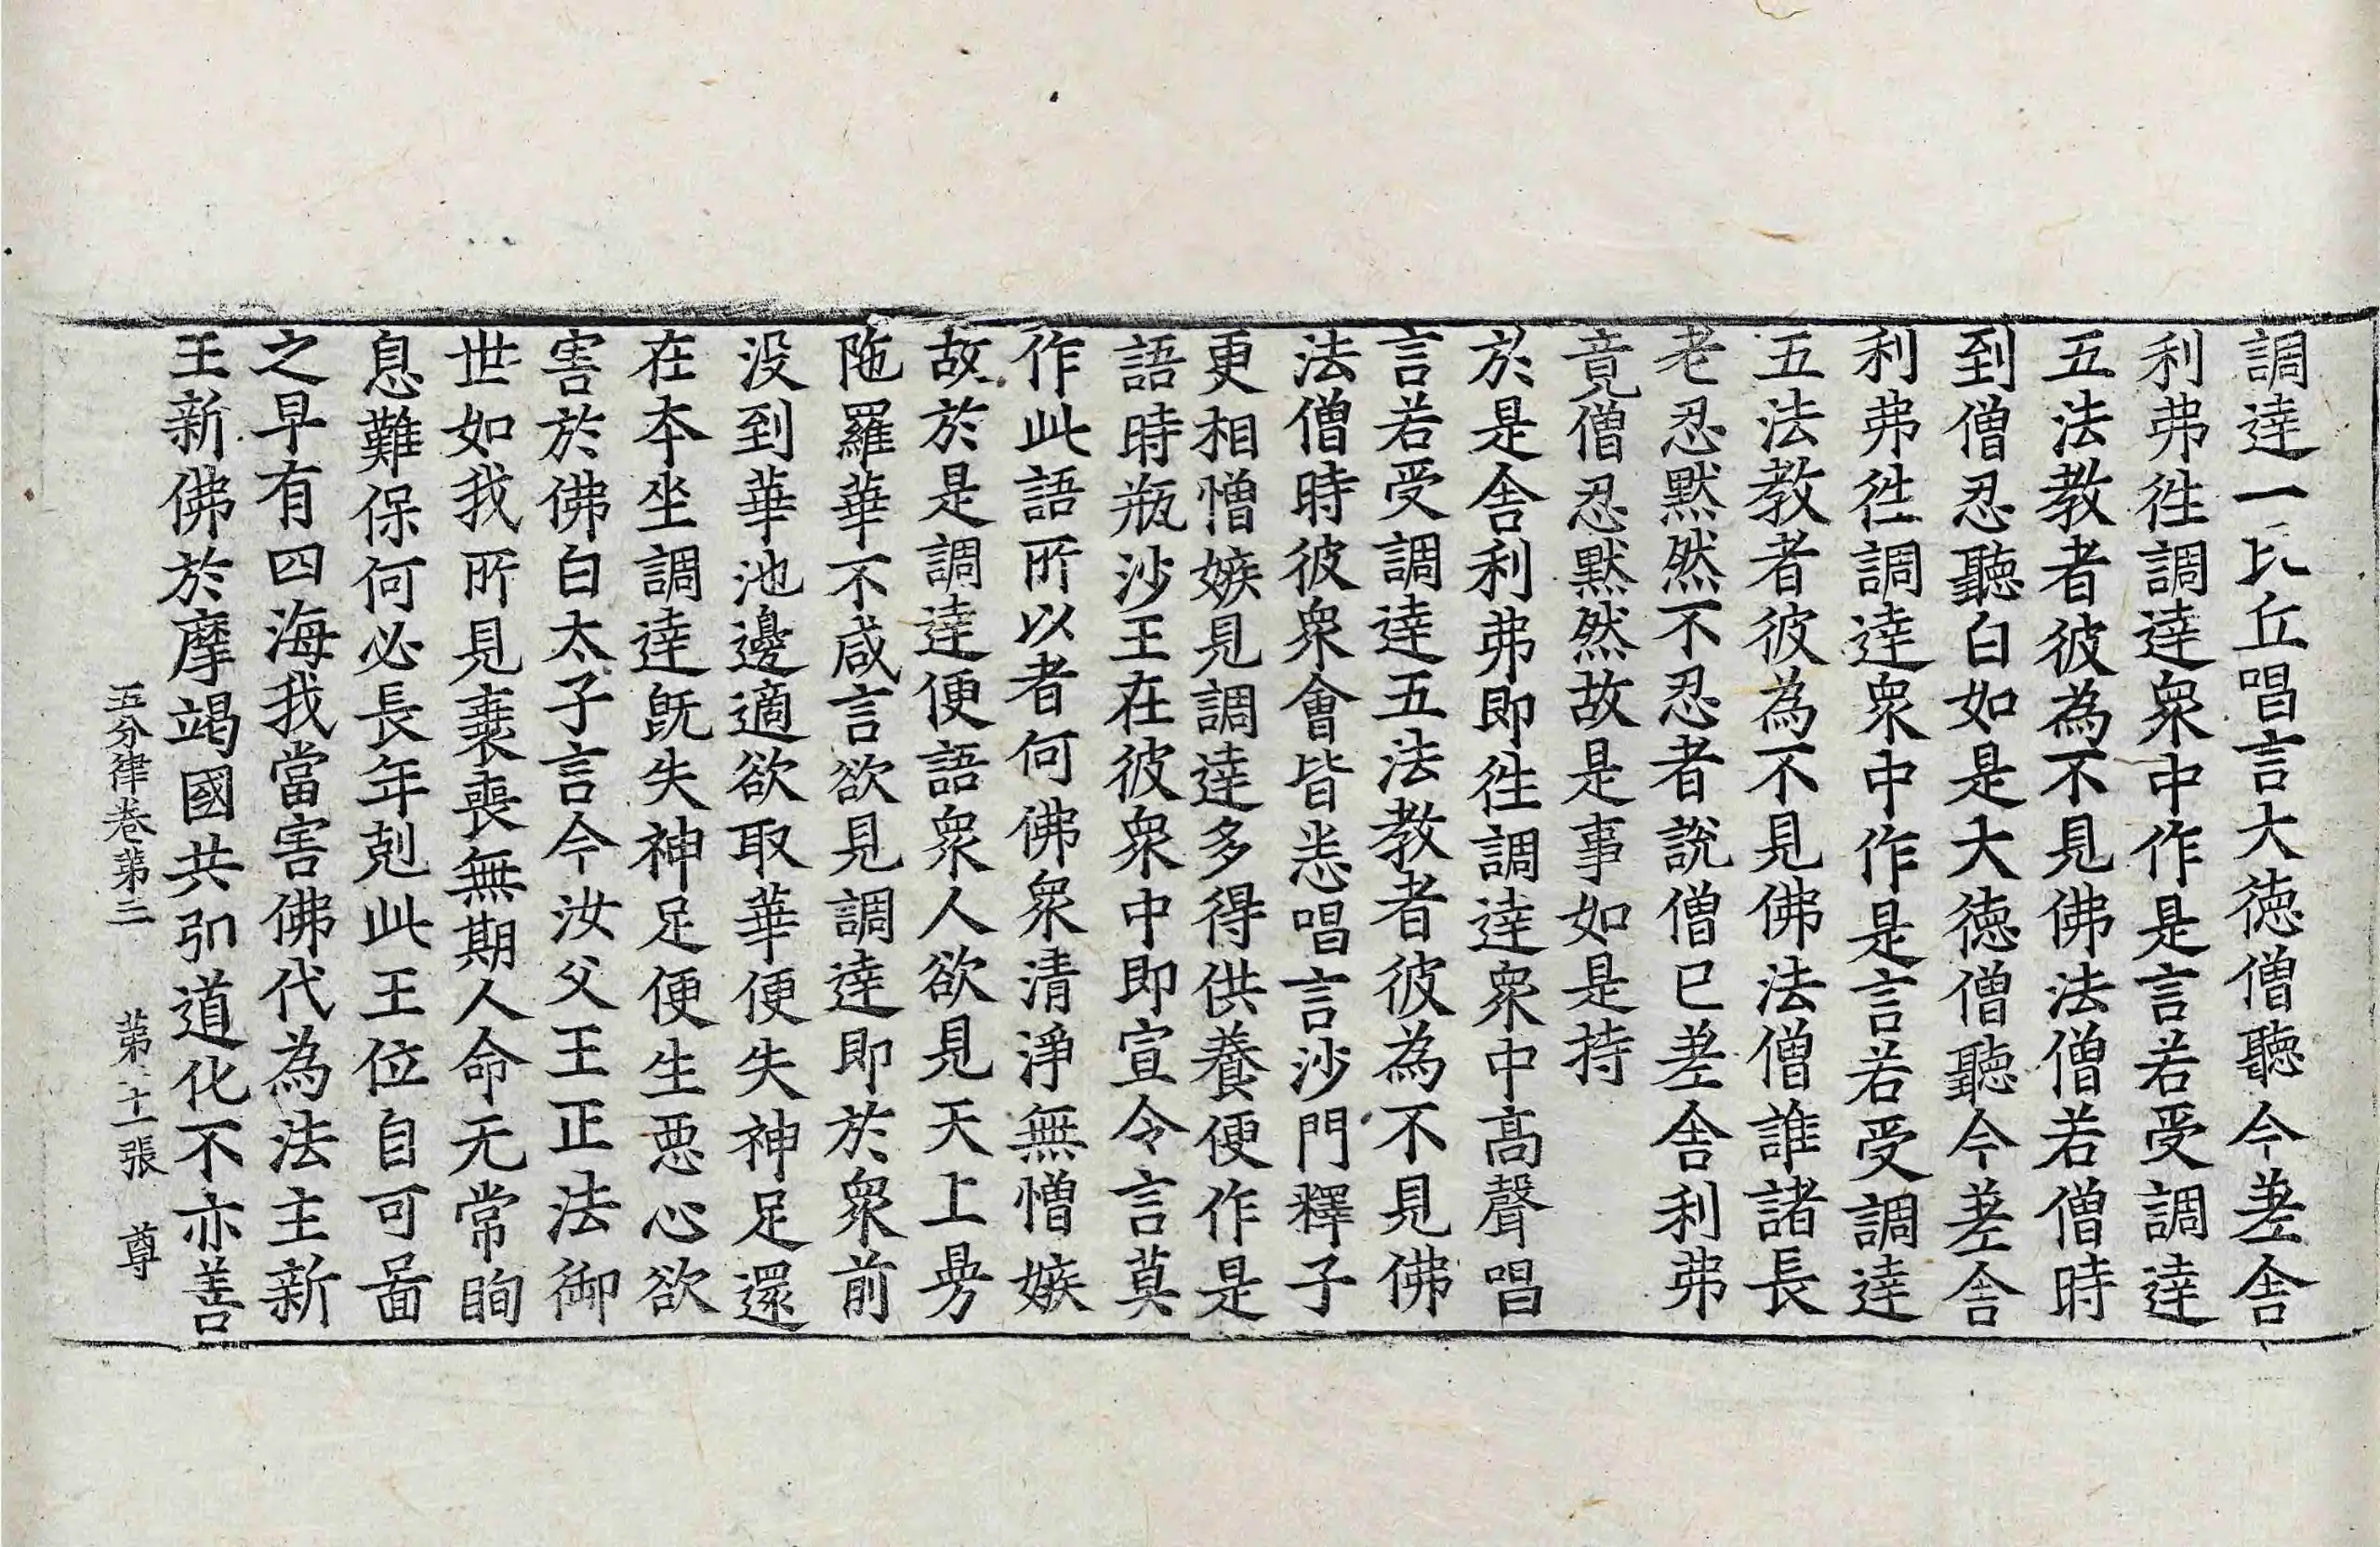 調達一比丘唱言大徳僧聽今差舎
利弗徃調達衆中作是言若受調達
五法教者彼為不見佛法僧若僧時
到僧忍聽白如是大徳僧聽今差舎
利弗徃調達衆中作是言若受調達
五法教者彼為不見佛法僧誰諸長
老忍黙然不忍者說僧已差舎利弗
竟僧忍黙然故是事如是持
於是舎利弗即徃調達衆中髙聲唱
言若受調達五法教者彼為不見佛
法僧時彼衆會皆悉唱言沙門釋子
更相憎嫉見調達多得供養便作是
語時瓶沙王在彼衆中即宣令言莫
作此語所以者何佛衆清淨無憎嫉
故於是調達便語衆人欲見天上旁
陁羅華不咸言欲見調達即於衆前
没到華池邊適欲取華便失神足還
在本坐調達旣失神足便生悪心欲
害於佛白太子言今汝父王正法御
世如我所見衰喪無期人命无常眴
息難保何必長年剋此王位自可啚
之早有四海我當害佛代為法主新
王新佛於摩竭國共弘道化不亦善
五分律卷第三 第十一張 尊